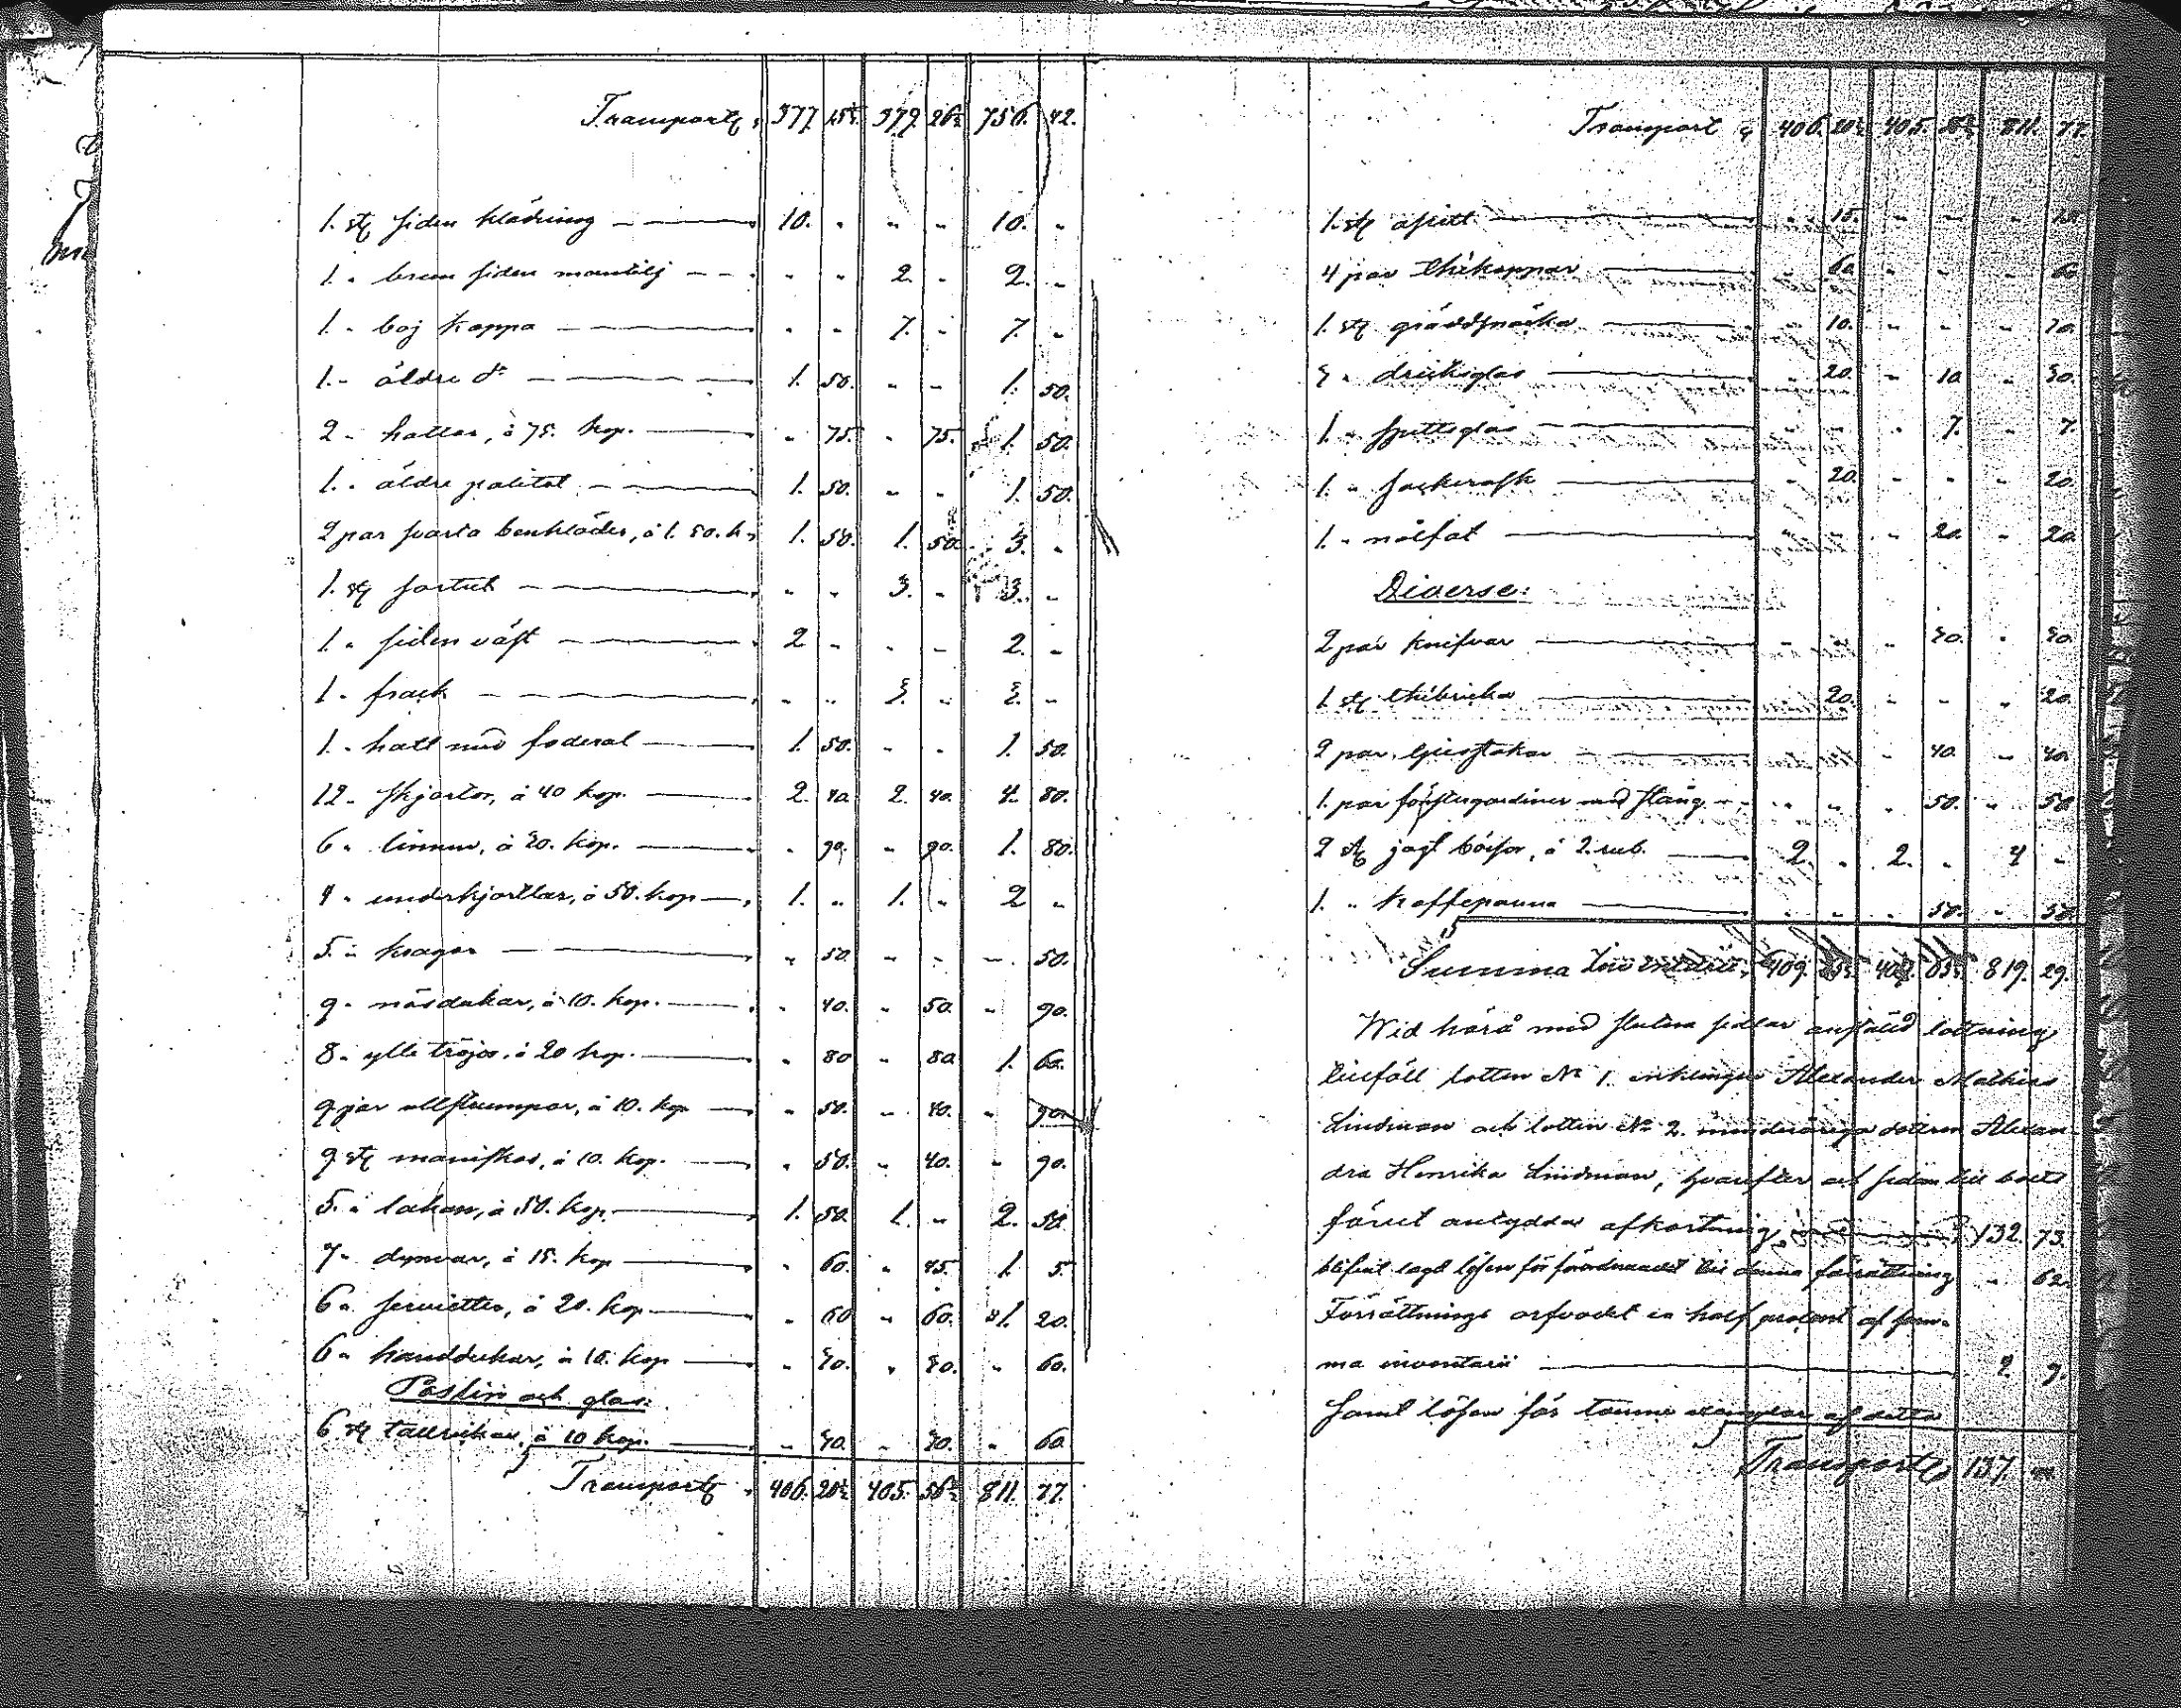 Transport, 377. 15½. 379. 26½ 756. 42.
1. st. siden klädning — 10. - - - 10. -
1. " brun siden mantilj — - - 2. - 2. -
1. " boj kappa — - - 7. - 7. -
1. " äldre do — 1. 50. - - 1. 50.
2 " hattar, à 75. kop. — - 75. - 75. 1. 50.
1. " äldre palitot — 1. 50. - - 1. 50.
2 par svarta benkläder, à 1. 50. k. 1. 50. 1. 50. 3. -
1. st. sortut — - - 3. - 3. -
1. " siden väst — 2 - - - 2. -
1 " frack — - - 3. - 3. -
1. " hatt med foderal — 1. 50. - - 1. 50.
12 " skjortor, à 40 kop. — 2. 40. 2. 40. 4. 80.
6 " linnen, à 30. kop. — - 90. - 90. 1. 80.
4 " underkjortlar, à 50. kop — 1. - 1. - 2 -
5 " kragar — - 50. - - - 50.
9 " näsdukar, à 10. kop. — - 40. - 50. - 90.
8 " ylle tröjor, à 20 kop. — - 80 - 80 1. 60.
9 par ullstrumpor, à 10. kop — - 50. - 40. - 90.
9 st. maniskor, à 10. kop. — - 50. - 40. - 90.
5 " lakan, à 50. kop. — 1. 50. 1. - 2. 50.
7 " dynvar, à 15. kop — - 60. - 45. 1. 5.
6 " servietter, à 20. kop — - 60 - 60. 1. 20.
6 " handdukar, à 10. kop — - 30. - 30. - 60.
Poslin och glas:
6 st. tallrikar, à 10 kop. — - 30. - 30. - 60.
Transport, 406. 20½ 405. 56½ 811. 77.
Transport 406. 20½ 405. 56½ 811. 77.
1. st. asiett — - 15. - - - 15.
4 par thékoppar — - 60. - - - 60.
1. st. gräddsnäcka — - 10. - - - 10.
3 " dricksglas — - 20. - 10. - 30.
1. " spettsglas — - - - 7. - 7.
1. " sockerask — - 20. - - - 20.
1. " målfat — - - - 20. - 20.
Diverse:
2 par knifvar — - - - 30. - 30.
1 st. thébricka — - 20. - - - 20.
2 par ljusstakar — - - - 40. - 40.
1. par fönstergardiner med stång — - - - 50. - 50
2 st. jagt bössor, à 2. rub. — 2. - 2. - 4 -
1. " kaffepanna — - - - 50. - 50
Summa Inventarii, 409. 409. 819. 29.
Wid härå med slutna sedlar anstäld lottning
tillföll lotten No 1. enklingen Alexander Mathias
Lindman och lotten No 2. minderåriga dottren Alexan-
dra Henrika Lindman, hvarefter och sedan till boets
förut antydda afkortning — 132. 73.
blifvit lagd lösen för förordnandet till denna förrättning - 62.
Förrättnings arfvodet en half procent af sum-
ma inventarii — 2
Samt lösen för tvenne exemplar af detta
Transport, 137.